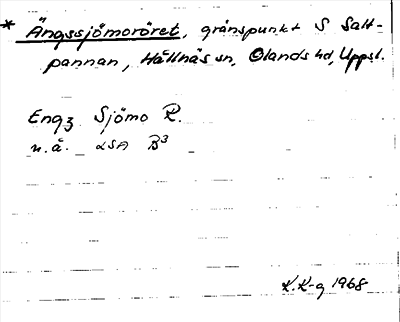 * Ängssjömoröret, gränspunkt S Salt-
pannan, Hållnäs sn, Olands hd, Uppsl.
Engz Sjömo R.
n.ä. LSA B3
K.K-g 1968